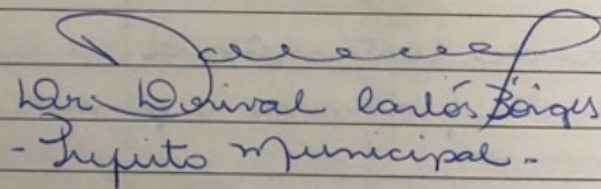 Dr. Dorival Carlós Borges
- Prefeito Municipal. -